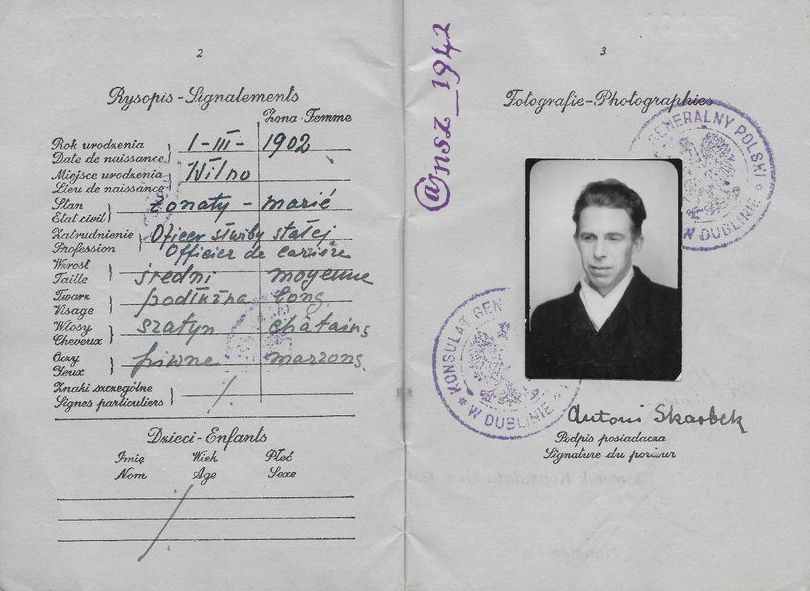 2
Rysopis - Signalements
Żona - Femme
Rok urodzenia
Date de naissance
1-III- 1902
Miejsce urodzenia
Lieu de naissance
Wilno
Stan
Etat civil
żonaty - marié
Zatrudnienie
Profession
Oficer służby stałej
Officier de carrière
Wzrost
Taille
średni moyenne
Twarz
Visage
podłużna Long
Włosy
Cheveux
szatyn châtains
Oczy
Yeux
piwne marrons.
Znaki szczególne
Signes particuliers
Dzieci - Enfants
Imię Wiek Płeć
Nom Age Sexe
@nsz_1942
3
Fotografie - Photographies
GENERALNY POLSKI
W DUBLINIE
KONSULAT GEN
* W DUBLINIE *
Antoni Skarbek
Podpis posiadacza
Signature du porteur